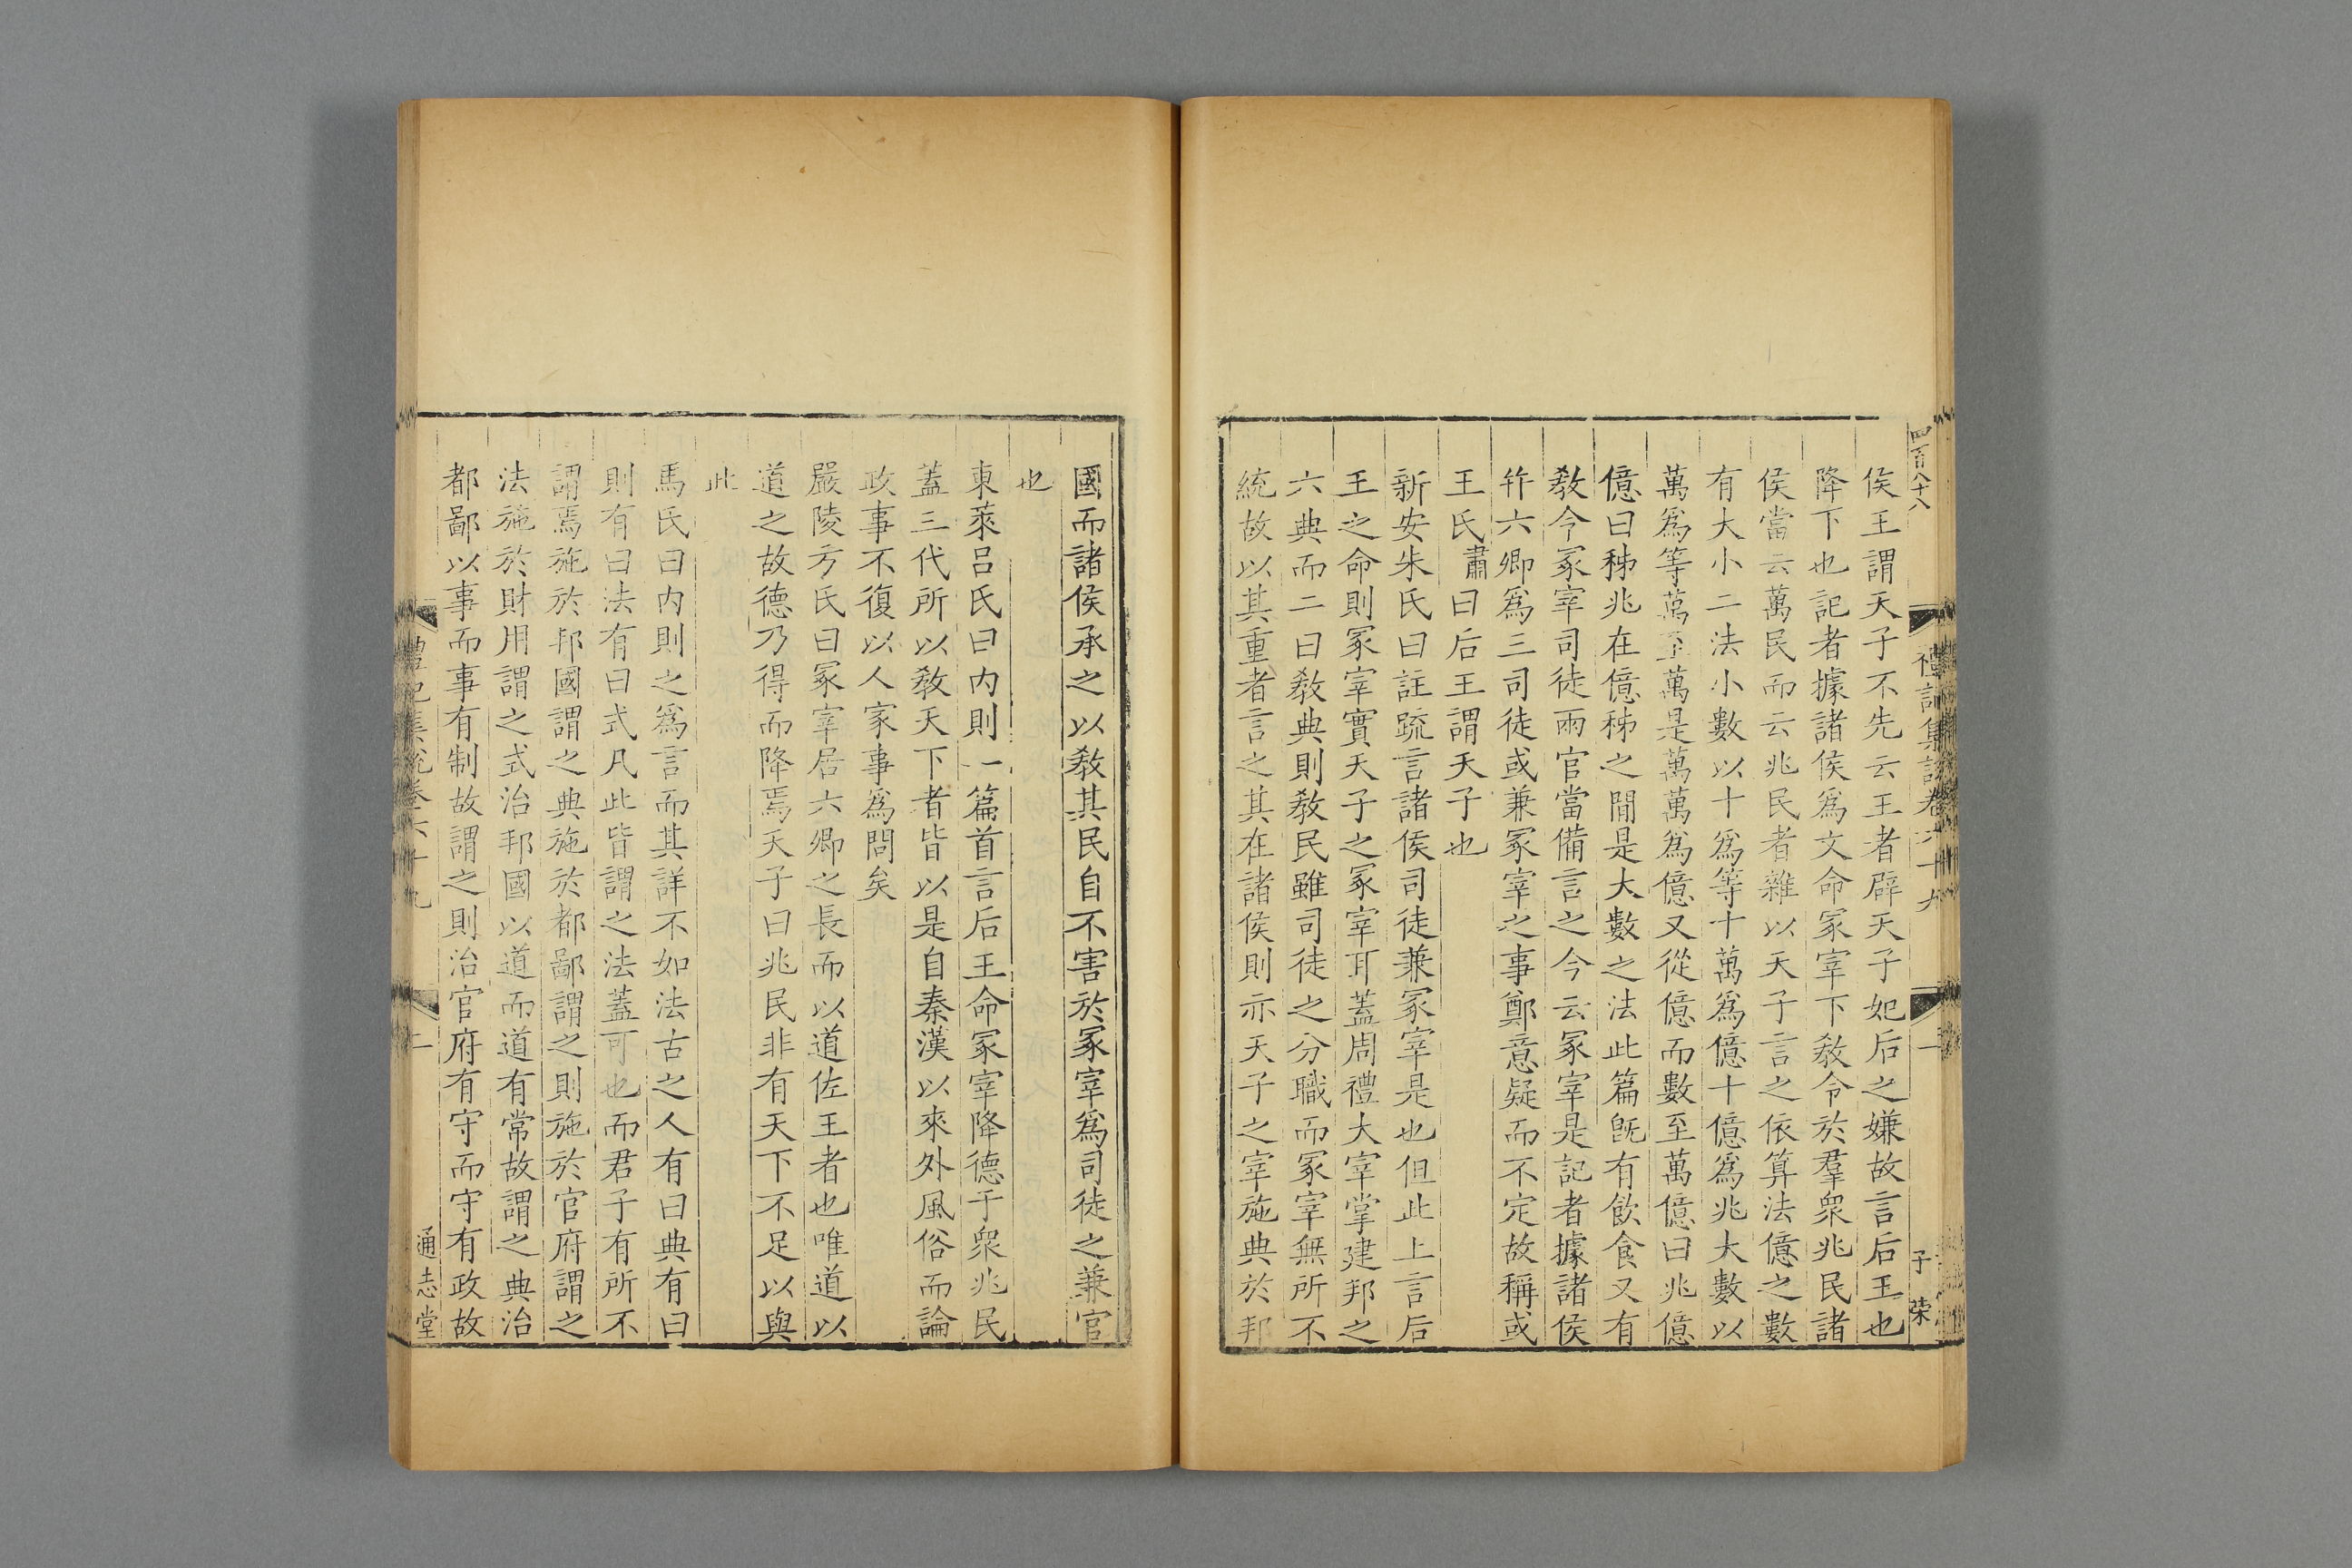 四百八十八
禮記集說卷六十九
一
子荣
侯王謂天子不先云王者辟天子妃后之嫌故言后王也
降下也記者據諸侯爲文命冢宰下敎令於羣衆兆民諸
侯當云萬民而云兆民者雜以天子言之依算法億之數
有大小二法小數以十爲等十萬爲億十億爲兆大數以
萬爲等萬至萬是萬萬爲億又從億而數至萬億曰兆億
億曰秭兆在億秭之間是大數之法此篇旣有飮食又有
敎令冢宰司徒兩官當備言之今云冢宰是記者據諸侯
幷六卿爲三司徒或兼冢宰之事鄭意疑而不定故稱或
王氏肅曰后王謂天子也
新安朱氏曰註疏言諸侯司徒兼冢宰是也但此上言后
王之命則冢宰實天子之冢宰耳蓋周禮大宰掌建邦之
六典而二曰敎典則敎民雖司徒之分職而冢宰無所不
統故以其重者言之其在諸侯則亦天子之宰施典於邦
國而諸侯承之以敎其民自不害於冢宰爲司徒之兼官
也
東萊呂氏曰內則一篇首言后王命冢宰降德于衆兆民
蓋三代所以敎天下者皆以是自秦漢以來外風俗而論
政事不復以人家事爲問矣
嚴陵方氏曰冢宰居六卿之長而以道佐王者也唯道以
道之故德乃得而降焉天子曰兆民非有天下不足以與
此
馬氏曰內則之爲言而其詳不如法古之人有曰典有曰
則有曰法有曰式凡此皆謂之法蓋可也而君子有所不
謂焉施於邦國謂之典施於都鄙謂之則施於官府謂之
法施於財用謂之式治邦國以道而道有常故謂之典治
都鄙以事而事有制故謂之則治官府有守而守有政故
禮記集說卷六十九
二
通志堂